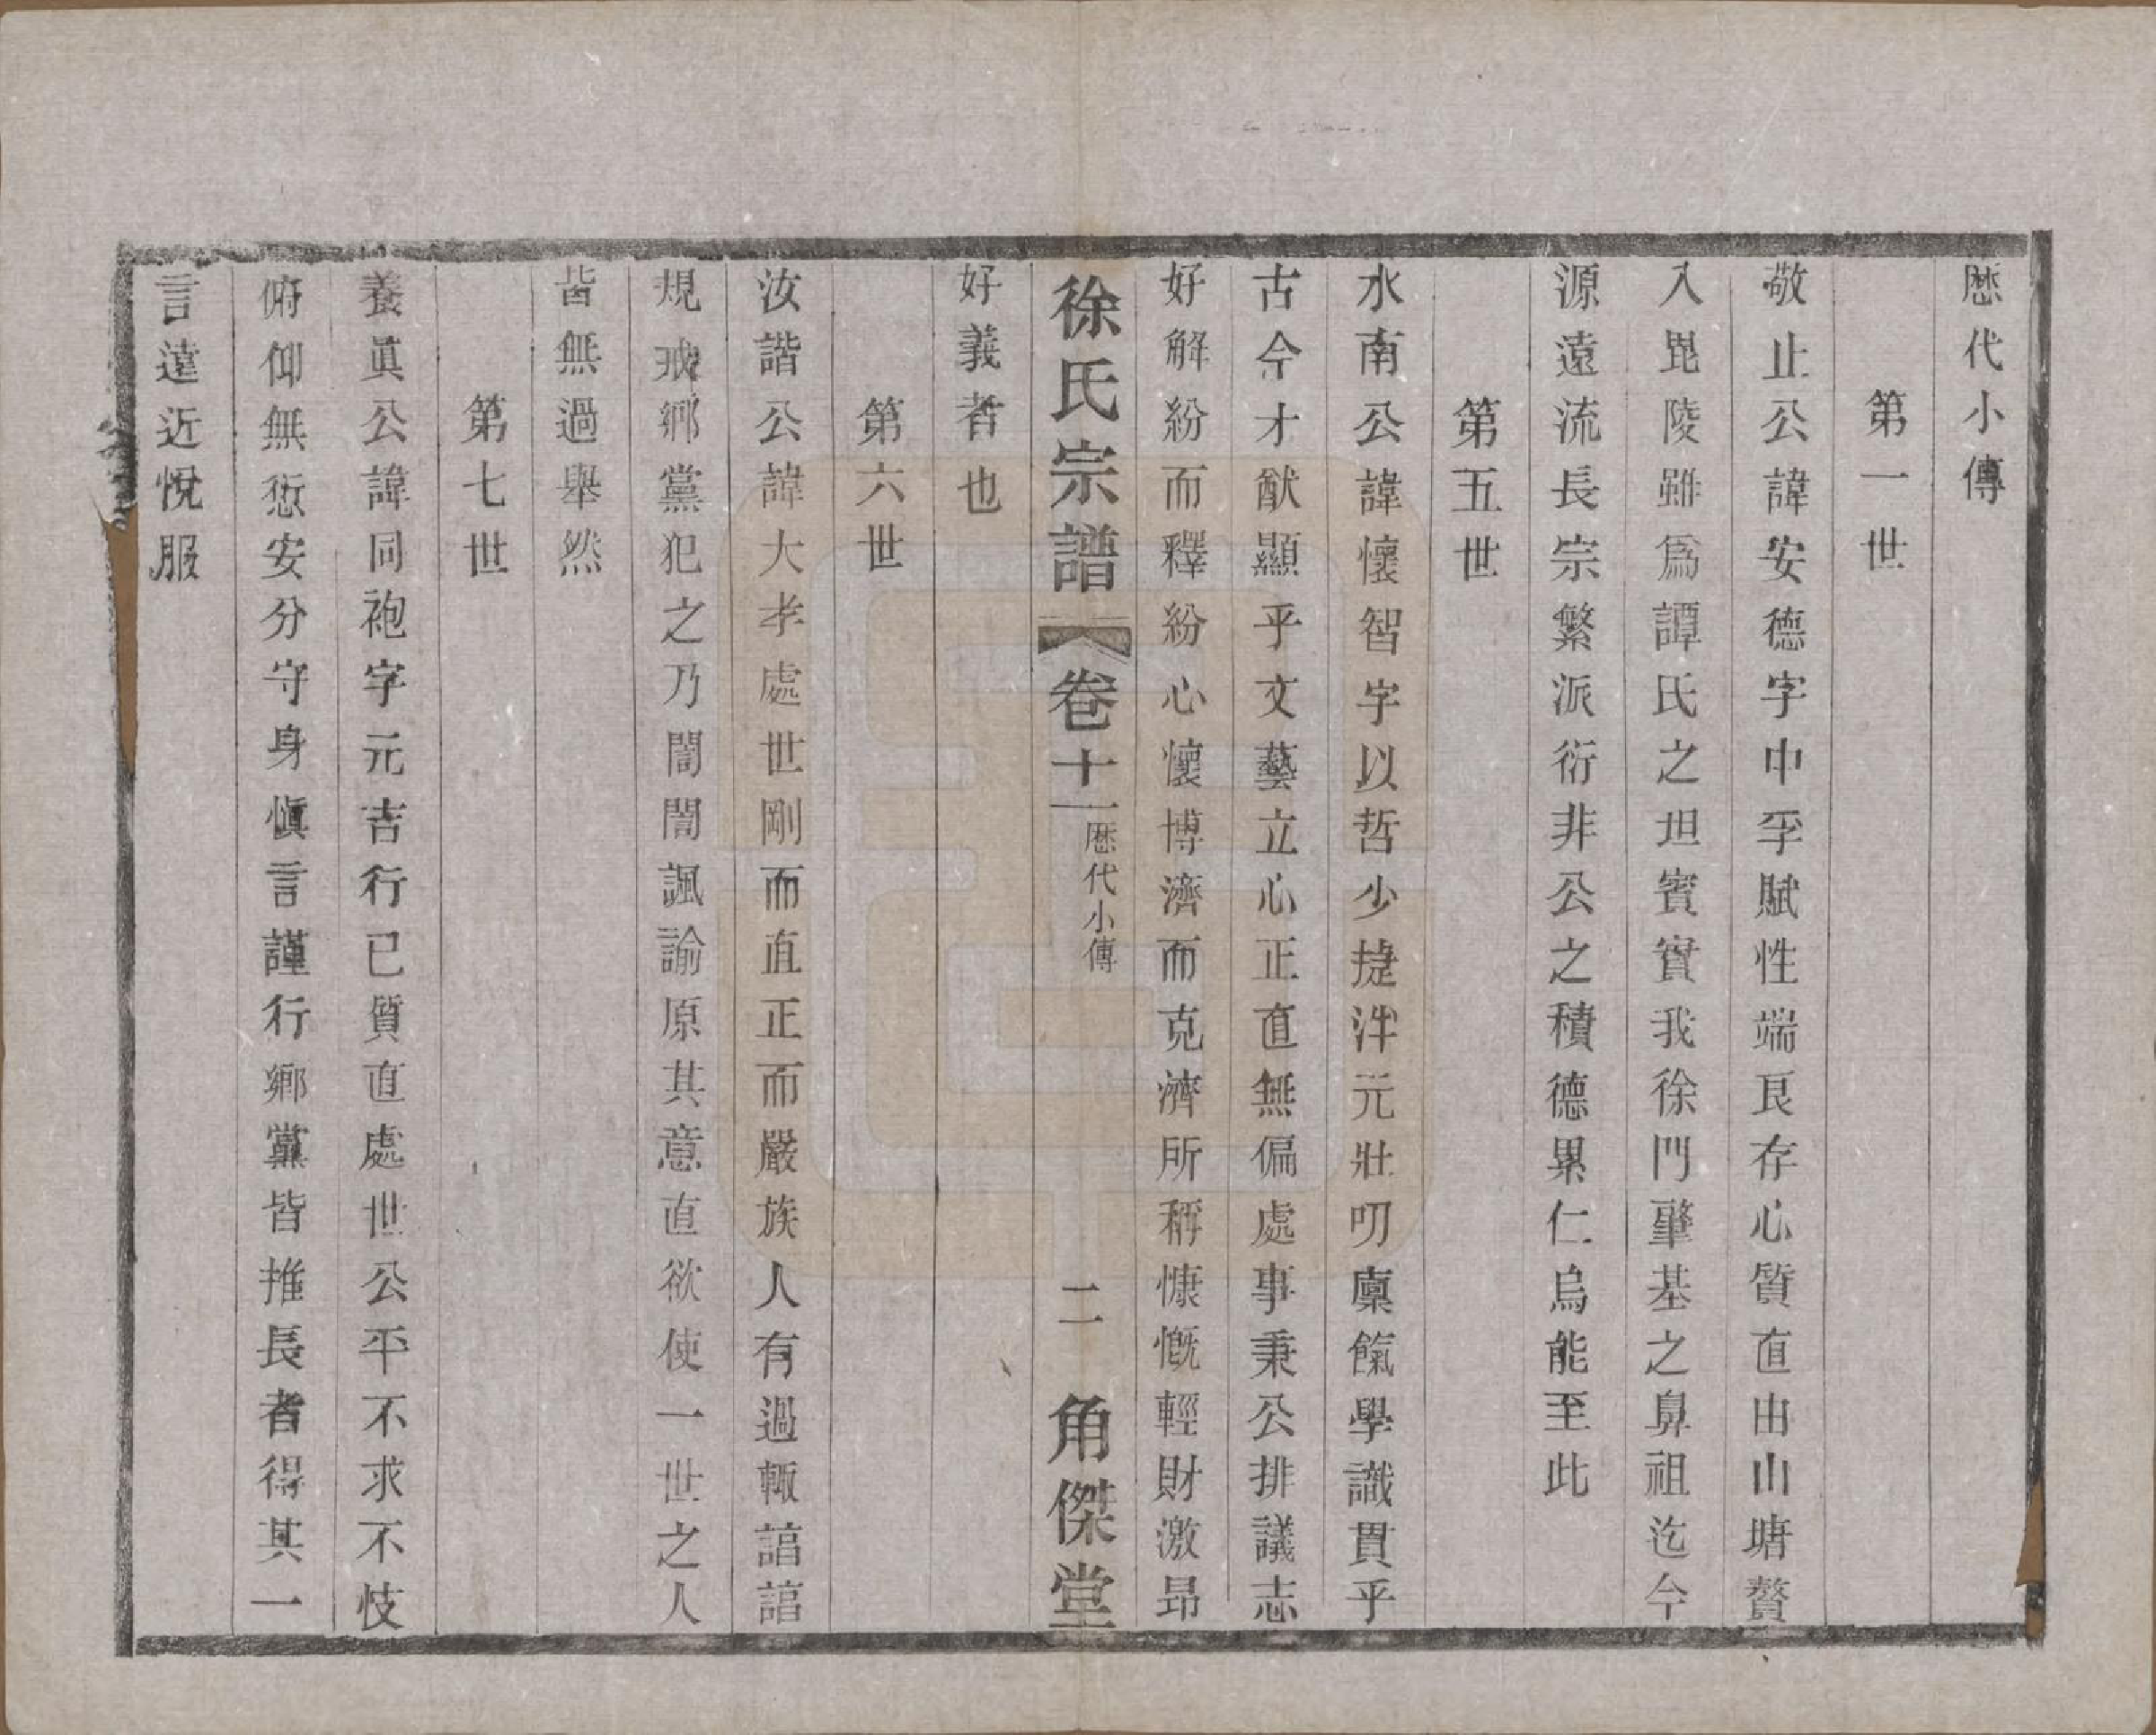 歷代小傳
第一世
敬止公諱安德字中孚賦性端良存心質直由山塘贅
入毘陵雖為譚氏之坦賓實我徐門肇基之鼻祖迄今
源遠流長宗繁派衍非公之積德累仁烏能至此
第五世
水南公諱懷智字以哲少捷泮元壯叨廩餼學識貫乎
古今才猷顯乎文藝立心正直無偏處事秉公排議志
好解紛而釋紛心懷博濟而克濟所稱慷慨輕財激昂
好義者也
徐氏宗譜 卷十一 歷代小傳 二 角傑堂
第六世
汝諧公諱大孝處世剛而直正而嚴族人有過輒諳諳
規戒鄉黨犯之乃誾誾諷諭原其意直欲使一世之人
皆無過舉然
第七世
養眞公諱同袍字元吉行已質直處世公平不求不忮
俯仰無愆安分守身愼言謹行鄉黨皆推長者得其一
言遠近悅服